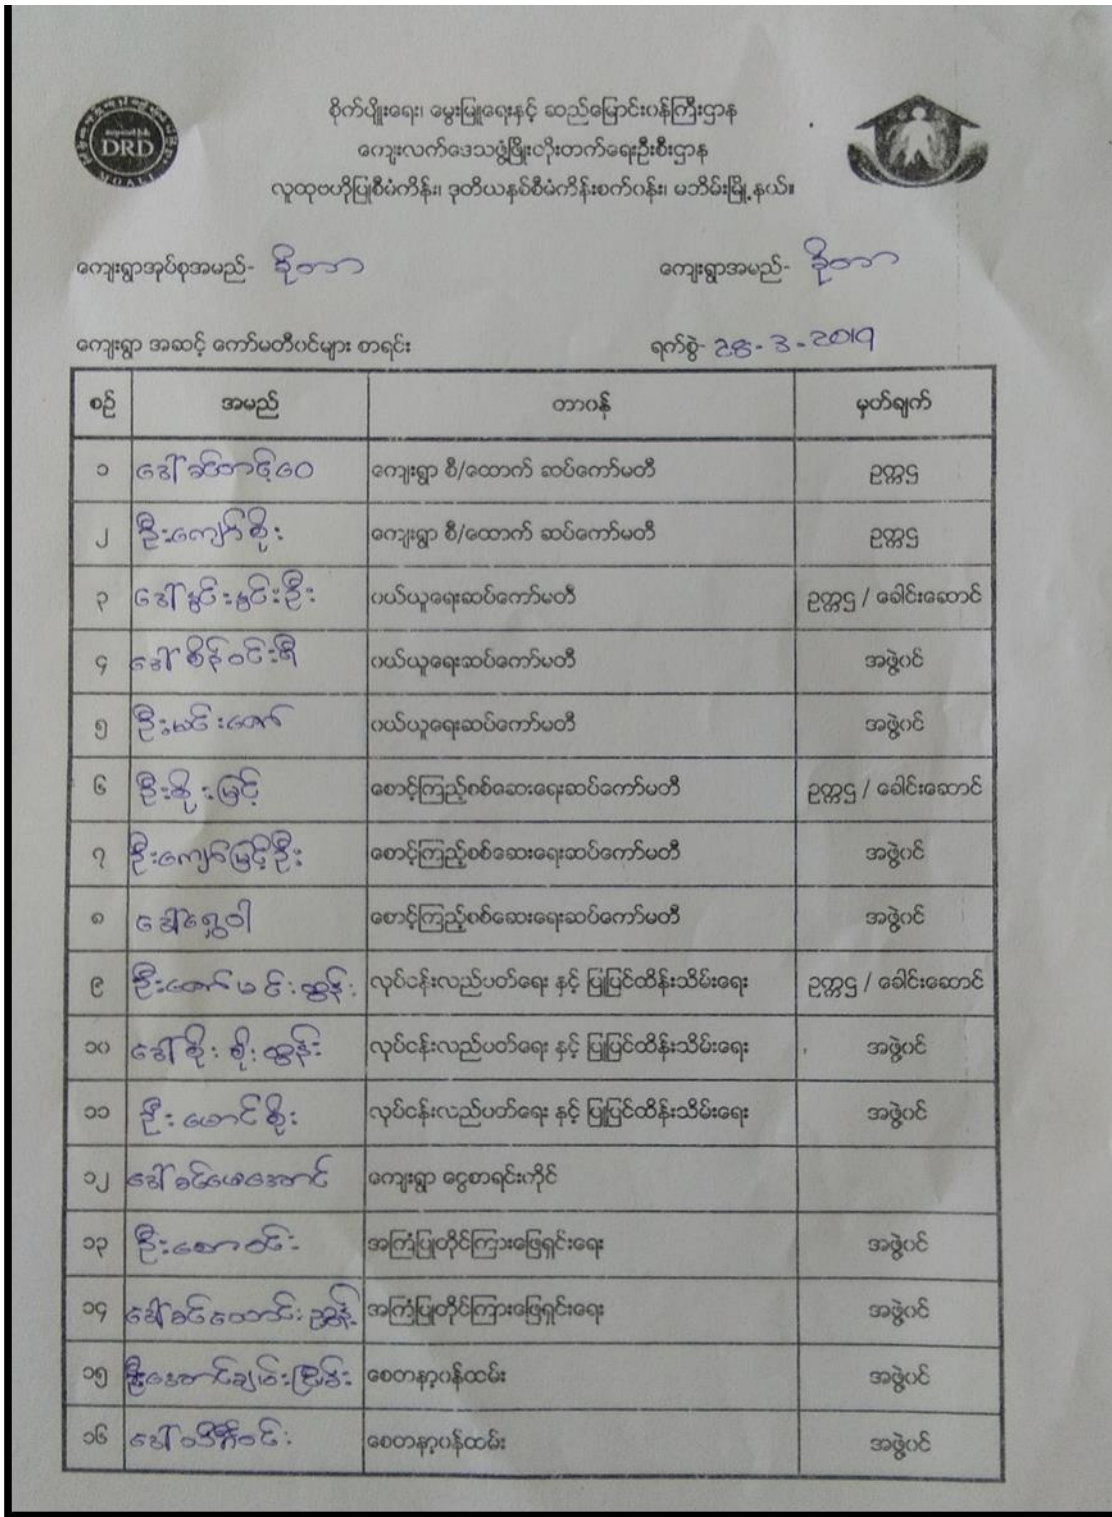 DRD
စိုက်ပျိုးရေး၊ မွေးမြူရေးနှင့် ဆည်မြောင်းဝန်ကြီးဌာန
ကျေးလက်ဒေသဖွံ့ဖြိုးတိုးတက်ရေးဦးစီးဌာန
လူထုဗဟိုပြုစီမံကိန်း၊ ဒုတိယနှစ်စီမံကိန်းစက်ဝန်း၊ မဘိမ်းမြို့နယ်။
ကျေးရွာအုပ်စုအမည်- ခိုတာ ကျေးရွာအမည်- ခိုတာ
ကျေးရွာ အဆင့် ကော်မတီဝင်များ စာရင်း ရက်စွဲ- 28-3-2019
စဉ် အမည် တာဝန် မှတ်ချက်
၁ ဒေါ်ခင်တင့်ဝေ ကျေးရွာ စီ/ထောက် ဆပ်ကော်မတီ ဥက္ကဌ
၂ ဦးကျော်စိုး ကျေးရွာ စီ/ထောက် ဆပ်ကော်မတီ ဥက္ကဌ
၃ ဒေါ်နှင်းနှင်းဦး ဝယ်ယူရေးဆပ်ကော်မတီ ဥက္ကဌ / ခေါင်းဆောင်
၄ ဒေါ်စိန်ဝင်းရီ ဝယ်ယူရေးဆပ်ကော်မတီ အဖွဲ့ဝင်
၅ ဦးမင်းဇော် ဝယ်ယူရေးဆပ်ကော်မတီ အဖွဲ့ဝင်
၆ ဦးစိုးမြင့် စောင့်ကြည့်စစ်ဆေးရေးဆပ်ကော်မတီ ဥက္ကဌ / ခေါင်းဆောင်
၇ ဦးကျော်မြင့်ဦး စောင့်ကြည့်စစ်ဆေးရေးဆပ်ကော်မတီ အဖွဲ့ဝင်
၈ ဒေါ်ရွှေဝါ စောင့်ကြည့်စစ်ဆေးရေးဆပ်ကော်မတီ အဖွဲ့ဝင်
၉ ဦးဇော်မင်းထွန်း လုပ်ငန်းလည်ပတ်ရေး နှင့် ပြုပြင်ထိန်းသိမ်းရေး ဥက္ကဌ / ခေါင်းဆောင်
၁၀ ဒေါ်စိုးစိုးထွန်း လုပ်ငန်းလည်ပတ်ရေး နှင့် ပြုပြင်ထိန်းသိမ်းရေး အဖွဲ့ဝင်
၁၁ ဦးမောင်စိုး လုပ်ငန်းလည်ပတ်ရေး နှင့် ပြုပြင်ထိန်းသိမ်းရေး အဖွဲ့ဝင်
၁၂ ဒေါ်ခင်မေအောင် ကျေးရွာ ငွေစာရင်းကိုင်
၁၃ ဦးစောဝင်း အကြံပြုတိုင်ကြားဖြေရှင်းရေး အဖွဲ့ဝင်
၁၄ ဒေါ်ခင်ထောင်းညွန့် အကြံပြုတိုင်ကြားဖြေရှင်းရေး အဖွဲ့ဝင်
၁၅ ဦးအောင်ချမ်းငြိမ်း စေတနာ့ဝန်ထမ်း အဖွဲ့ဝင်
၁၆ စေတနာ့ဝန်ထမ်း အဖွဲ့ဝင်